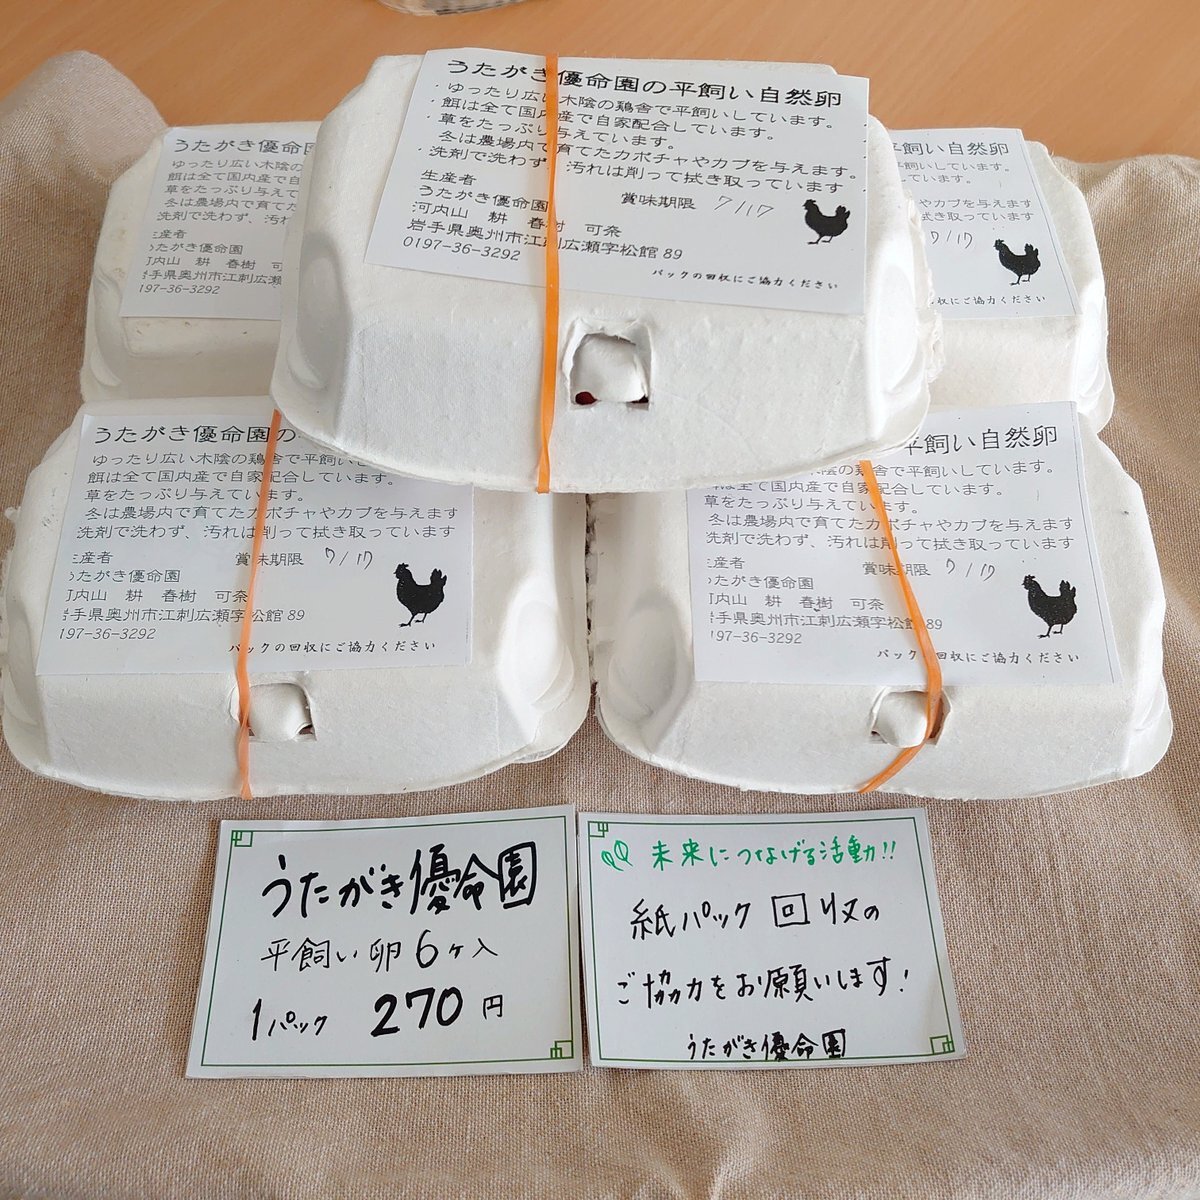 うたがき優命園
ゆったり広い木陰の鶏
餌は全て国内産で自
草をたっぷり与えて
冬は農場内で育て
洗剤で洗わず、汚れ
産者
うたがき優命園
河内山 耕 春樹 可
手県奥州市江刺広瀬
197-36-3292
うたがき優命園の平飼い自然卵
・ゆったり広い木陰の鶏舎で平飼いしています。
・餌は全て国内産で自家配合しています。
・草をたっぷり与えています。
冬は農場内で育てたカボチャやカブを与えます。
・洗剤で洗わず、汚れは削って拭き取っています
生産者 賞味期限 7/17
うたがき優命園
河内山 耕 春樹 可奈
岩手県奥州市江刺広瀬字松館 89
0197-36-3292
パックの回収にご協力ください
平飼い自然卵
飼いしています。
ています。
やカブを与えます
拭き取っています
7/17
回収にご協力ください
うたがき優命園の
ゆったり広い木陰の鶏舎で平飼いし
餌は全て国内産で自家配合しています。
草をたっぷり与えています。
冬は農場内で育てたカボチャやカブを与えます
洗剤で洗わず、汚れは削って拭き取っています
産者 賞味期限 7/17
うたがき優命園
河内山 耕 春樹 可奈
岩手県奥州市江刺広瀬字松館 89
197-36-3292
パックの回収にご協力ください
平飼い自然卵
木陰の鶏舎で平飼いしています。
は全て国内産で自家配合しています。
草をたっぷり与えています。
冬は農場内で育てたカボチャやカブを与えます
洗剤で洗わず、汚れは削って拭き取っています
産者 賞味期限 7/17
うたがき優命園
河内山 耕 春樹 可奈
手県奥州市江刺広瀬字松館 89
197-36-3292
パックの回収にご協力ください
うたがき優命園
平飼い卵6ヶ入
1パック 270円
未来につなげる活動!!
紙パック回収の
ご協力をお願いします!
うたがき優命園